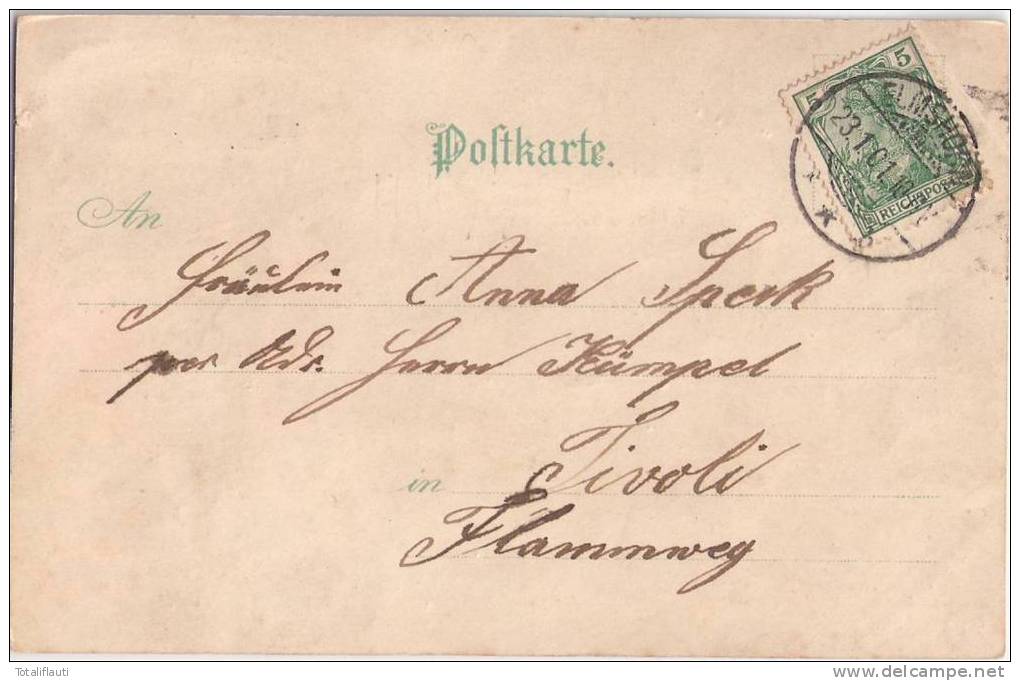 Postkarte.
5 5
REICHSPOST
ELMSHORN
23.1.01.
An
Fräulein Anna Sperk
per Adr. Herrn Kümpel
in Tivoli
Flammweg
Totaliflauti
www.delcampe.net